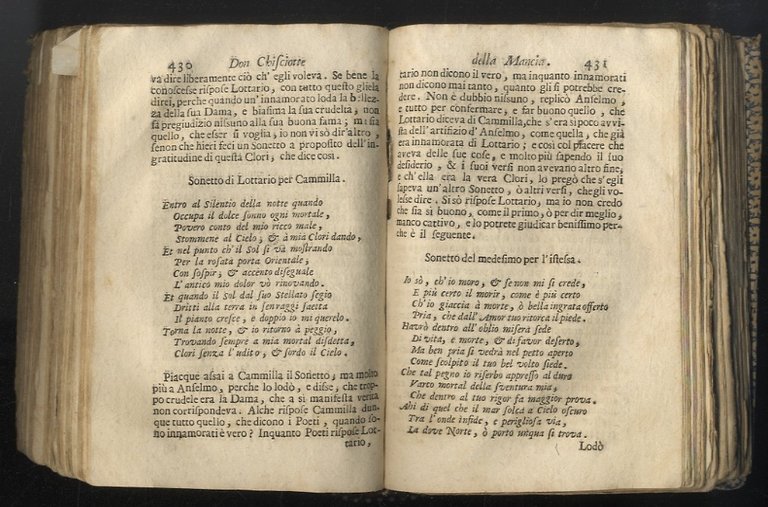 430 Don Chiſciotte
va dire liberamente ciò ch' egli voleva. Se bene la
conoſceſſe riſpoſe Lottario, con tutto queſto gliela
direi, perche quando un' innamorato loda la bellez-
za della ſua Dama, e biaſima la ſua crudeltà, non
fà pregiudizio niſſuno alla ſua buona fama; mà ſia
quello, che eſſer ſi voglia, io non vi sò dir'altro,
ſenon che hieri feci un Sonetto a propoſito dell'in-
gratitudine di queſta Clori, che dice coſi.
Sonetto di Lottario per Cammilla.
Entro al Silentio della notte quando
Occupa il dolce ſonno ogni mortale,
Povero conto del mio ricco male,
Stommene al Cielo; & à mia Clori dando,
Et nel punto ch' il Sol ſi và moſtrando
Per la roſata porta Orientale;
Con ſoſpir; & accento diſeguale
L' antico mio dolor vò rinovando.
Et quando il Sol dal ſuo Stellato ſegio
Dritti alla terra in ſenraggi ſaetta
Il pianto creſce, e doppio io mi querelo.
Torna la notte, & io ritorno à peggio,
Trovando ſempre a mia mortal diſdetta,
Clori ſenza l'udito, & ſordo il Cielo.
Piacque aſſai a Cammilla il Sonetto, ma molto
più a Anſelmo, perche lo lodò, e diſſe, che trop-
po crudele era la Dama, che a si manifeſta verità
non corriſpondeva. Alche riſpoſe Cammilla dun-
que tutto quello, che dicono i Poeti, quando ſo-
no innamorati è vero? Inquanto Poeti riſpoſe Lot-
tario,
della Mancia. 431
tario non dicono il vero, ma inquanto innamorati
non dicono mai tanto, quanto gli ſi potrebbe cre-
dere. Non è dubbio niſſuno, replicò Anſelmo,
e tutto per confermare, e far buono quello, che
Lottario diceva di Cammilla, che s'era sì poco avvi-
ſta dell'artifizio d'Anſelmo, come quella, che già
era innamorata di Lottario; e così col piacere che
aveva delle ſue coſe, e molto più ſapendo il ſuo
deſiderio, & i ſuoi verſi non avevano altro fine,
e ch'ella era la vera Clori, lo pregò che s'egli
ſapeva un'altro Sonetto, ò altri verſi, che gli vo-
leſſe dire. Sì sò riſpoſe Lottario, ma io non credo
che ſia sì buono, come il primo, ò per dir meglio,
manco cattivo, e lo potrete giudicar beniſſimo per-
che è il ſeguente.
Sonetto del medeſimo per l'iſteſſa.
Io sò, ch'io moro, & ſe non mi ſi crede,
E più certo il morir, come è più certo
Ch'io giaccia à morte, ò bella ingrata offerto
Pria, che dall'Amor tuo ritorca il piede.
Havrò dentro all'oblio miſera ſede
Di vita, e morte, & di favor deſerto,
Ma ben pria ſi vedrà nel petto aperto
Come ſcolpito il tuo bel volto ſiede.
Che tal pegno io riſerbo appreſſo al duro
Varco mortal della ſventura mia,
Che dentro al tuo rigor fa maggior prova.
Ahi di quel che il mar ſolca a Cielo oſcuro
Tra l'onde infide, e periglioſa via,
La dove Norte, ò porto unqua ſi trova.
Lodò